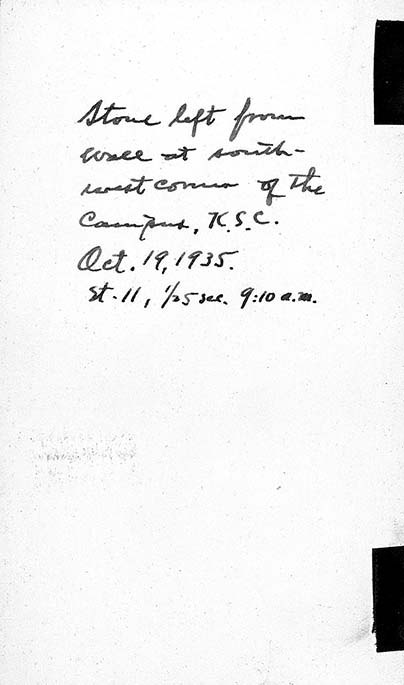 Stone left from
wall at south-
west corner of the
Campus, K.S.C.
Oct. 19, 1935.
St. 11, 1/25 sec. 9:10 a.m.